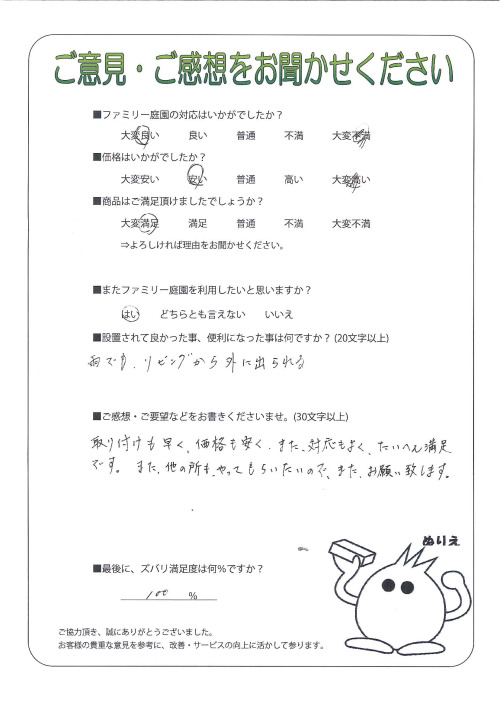 ご意見・ご感想をお聞かせください
■ファミリー庭園の対応はいかがでしたか？
大変良い 良い 普通 不満 大変不満
■価格はいかがでしたか？
大変安い 安い 普通 高い 大変高い
■商品はご満足頂けましたでしょうか？
大変満足 満足 普通 不満 大変不満
⇒よろしければ理由をお聞かせください。
■またファミリー庭園を利用したいと思いますか？
はい どちらとも言えない いいえ
■設置されて良かった事、便利になった事は何ですか？(20文字以上)
雨でも、リビングから外に出られる
■ご感想・ご要望などをお書きくださいませ。(30文字以上)
取り付けも早く、価格も安く、また、対応もよく、たいへん満足
です。また、他の所も、やってもらいたいので、また、お願い致します。
ぬりえ
■最後に、ズバリ満足度は何％ですか？
100 ％
ご協力頂き、誠にありがとうございました。
お客様の貴重な意見を参考に、改善・サービスの向上に活かして参ります。